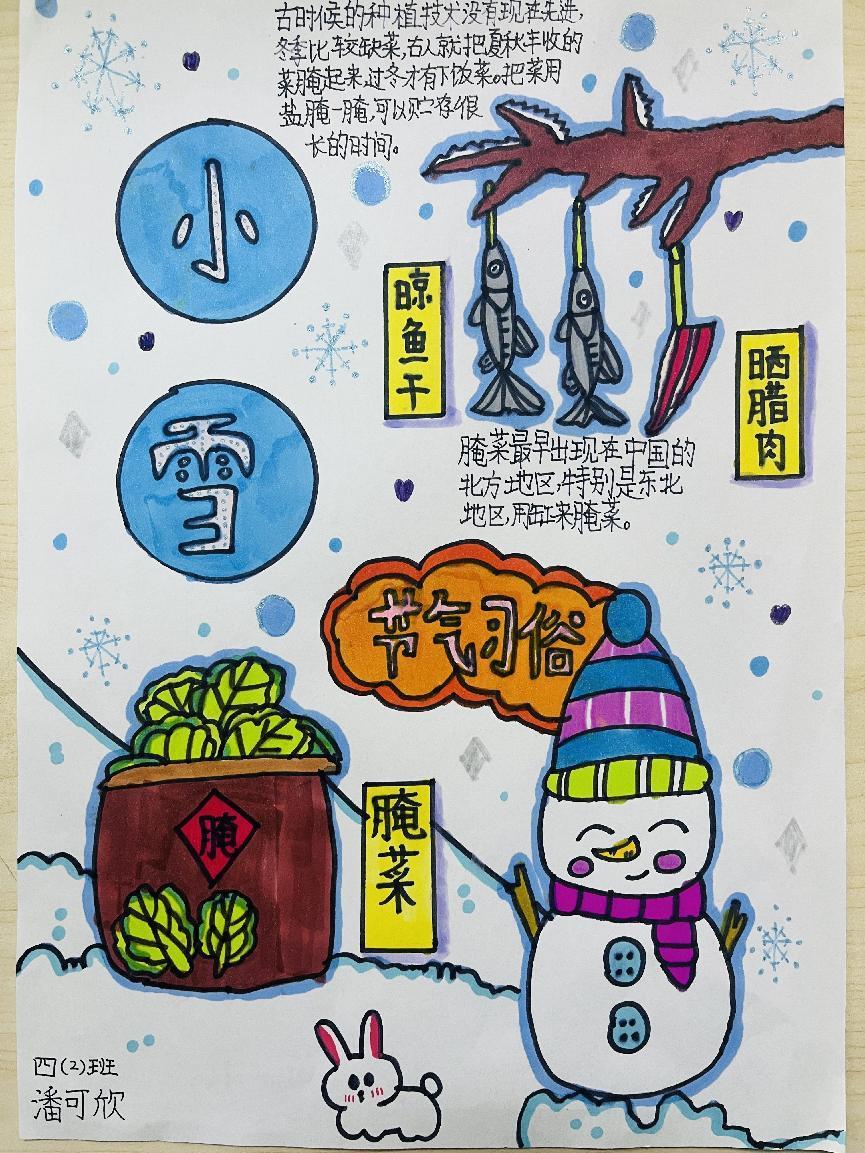 古时候的种植技术没有现在先进,
冬季比较缺菜,古人就把夏秋丰收的
菜腌起来,过冬才有下饭菜。把菜用
盐腌一腌,可以贮存很
长的时间。
小
雪
晾鱼干
晒腊肉
腌菜最早出现在中国的
北方地区,特别是东北
地区,用缸来腌菜。
节气习俗
腌
腌菜
四(2)班
潘可欣